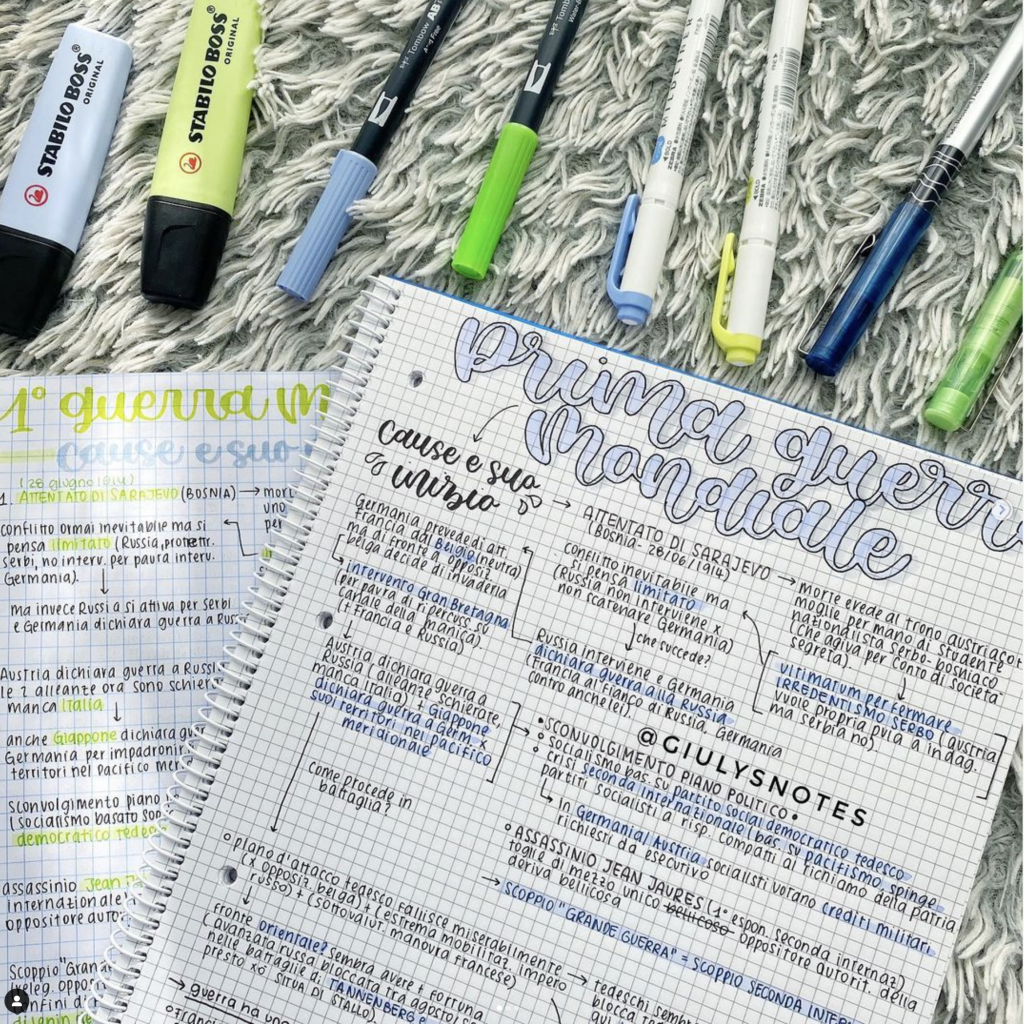 STABILO BOSS®
ORIGINAL
STABILO BOSS®
ORIGINAL
Tombow AB
Tombow
ZEBRA
ZEBRA
1° guerra M
cause e suo
(28 giugno 1914)
1. ATTENTATO DI SARAJEVO (BOSNIA) → mort
uno
per
conflitto ormai inevitabile ma si
pensa limitato (Russia, protettr.
Serbi, no interv. per paura interv.
Germania).
ma invece Russia si attiva per Serbi
e Germania dichiara guerra a Russ
Austria dichiara guerra a Russi
le 2 alleanze ora sono schiera
manca Italia
anche Giappone dichiara gue
Germania per impadronir
territori nel Pacifico mer
Sconvolgimento piano
(socialismo basato so
democratico tedes
assassinio Jean
Internazionale
oppositore autor
Scoppio "Gran
prima guerra
Mondiale
cause e suo
inizio
→ ATTENTATO DI SARAJEVO
(Bosnia - 28/06/1914)
→ morte erede al trono austriaco +
moglie per mano di studente
nazionalista serbo-bosniaco
(che agiva per conto di società
segreta).
ULTIMATUM PER FERMARE
IRREDENTISMO SERBO (austria
vuole propria pula a indag.
ma serbia no)
Conflitto inevitabile ma
si pensa limitato
(Russia non interviene x
non scatenare Germania)
che succede?
Russia interviene e Germania
dichiara guerra alla Russia
(Francia al fianco di Russia, Germania
contro anche lei).
Germania prevede di att.
Francia dal Belgio (neutra)
ma di fronte a opposiz.
belga decide di invaderla
intervento Gran Bretagna
(per paura di ripercuss. su
canale della manica)
(+ Francia e Russia)
Austria dichiara guerra a
Russia (alleanze schierate,
manca Italia) + Giappone
dichiara guerra a Germ. x
suoi territori nel pacifico
meridionale
@GIULYSNOTES
• SCONVOLGIMENTO PIANO POLITICO •
• Socialismo bas. su partito social democratico tedesco
• crisi seconda internazionale (bas. su pacifismo, spinge
partiti socialisti a risp. compatti al richiamo della patria
↳ In Germania/Austria socialisti votano crediti militari
richiesti da esecutivo
° ASSASSINIO JEAN JAURES (1° espon. seconda internaz)
toglie di mezzo unico bellicoso oppositore autorit. della
deriva bellicosa
→ SCOPPIO "GRANDE GUERRA" = SCOPPIO SECONDA INTERN
Come procede in
battaglia?
° piano d'attacco tedesco fallisce miseramente
(x opposiz. belga) + (estrema mobilitaz. impero
russo) + (sottovalut. manovra francese)
fronte orientale? Sembra avere + fortuna
(avanzata russa bloccata tra agosto/se
nelle battaglie di TANNENBERG e
presto xò SITUA DI STALLO).
→ tedeschi semb
blocca
qui
→ guerra ha uno
° Franci